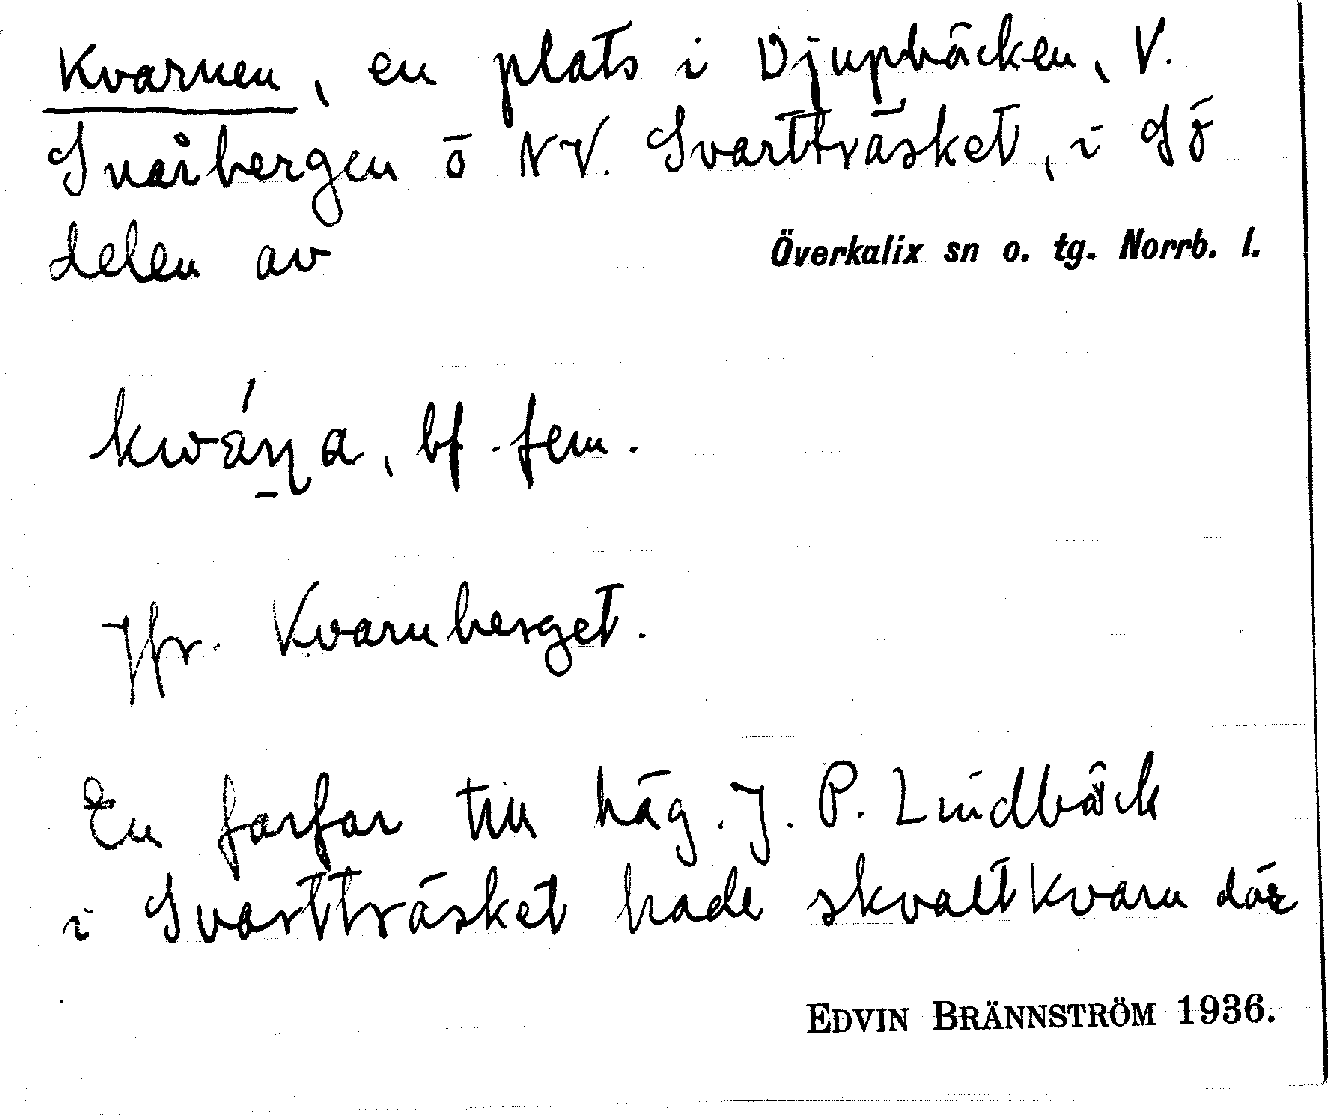 Kvarnen, en plats i Djupbäcken, V.
Snårbergen o NV. Svartträsket, i Sö
delen av Överkalix sn o. tg. Norrb. l.
kwáṇa, bf. fem.
Jfr. Kvarnberget.
En farfar till häg. J. P. Lindbäck
i Svartträsket hade skvaltkvarn där
EDVIN BRÄNNSTRÖM 1936.